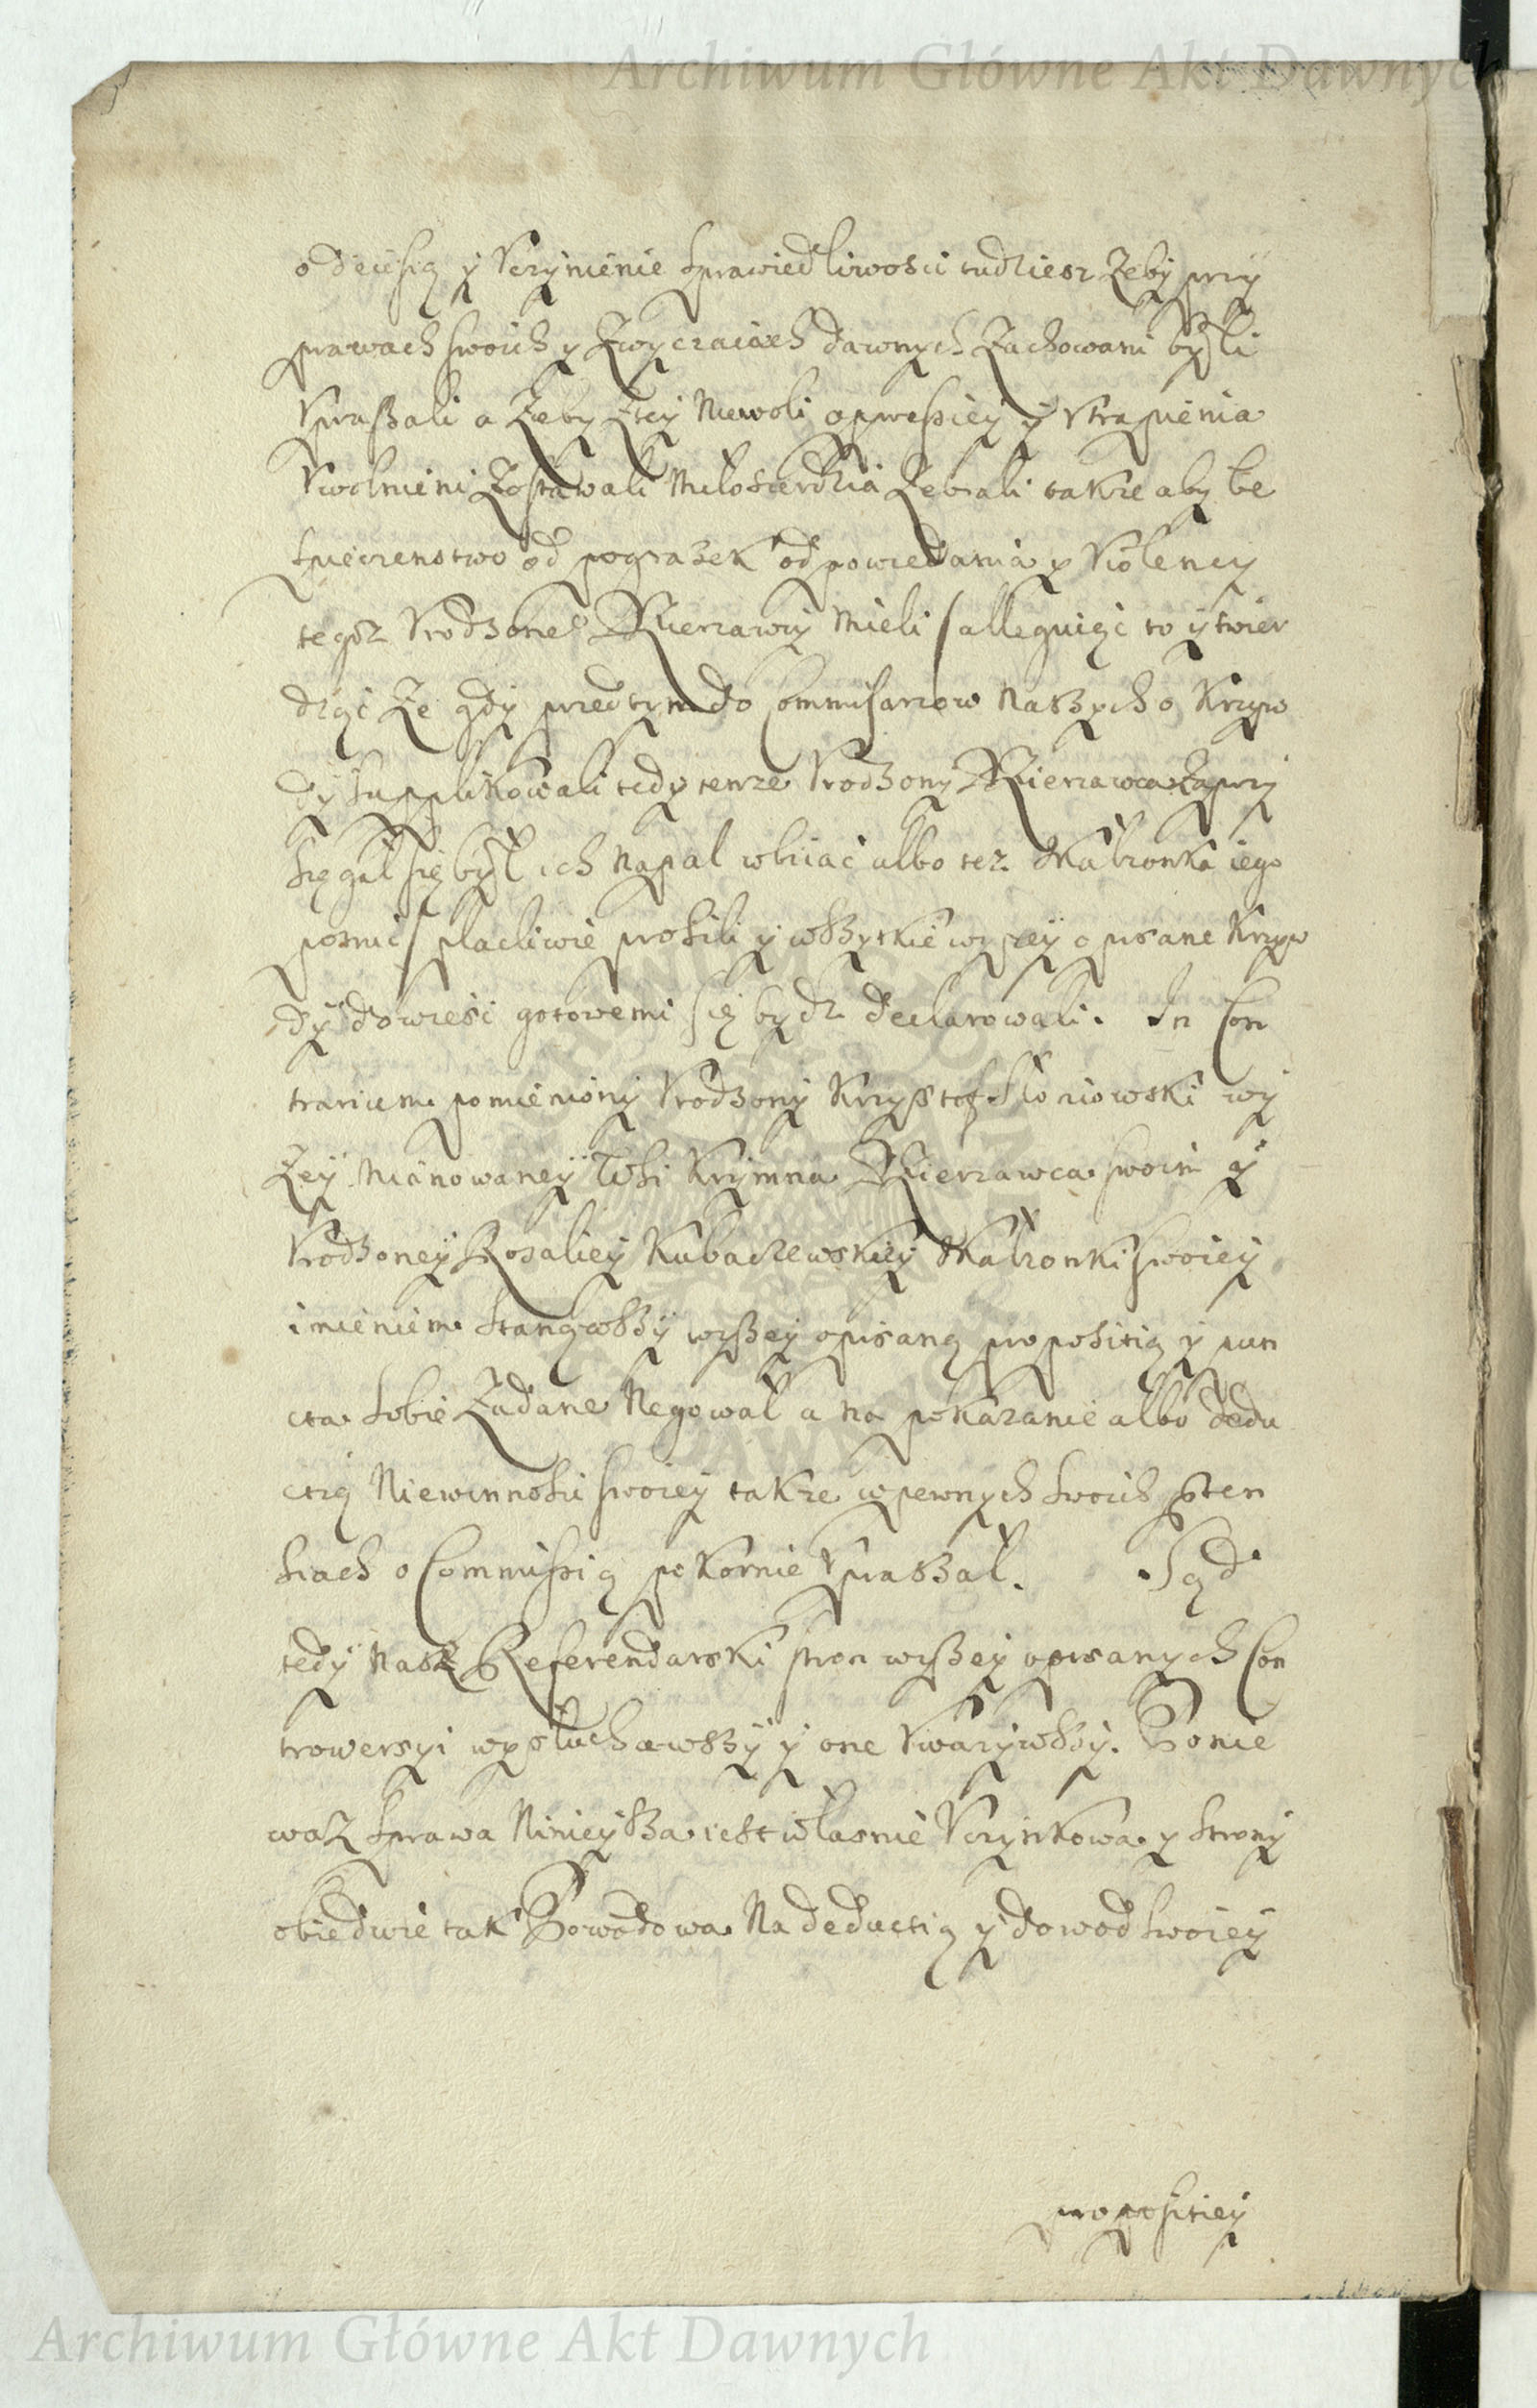 Archiwum Główne Akt Dawnych
o decisią y Vczynienie sprawiedliwosci tudziesz Żeby przy
prawach swoich y Zwyczaiach dawnych Zachowani byli
Vpraszali a Żeby Ztey Niewoli oppressiey y Vtrapienia
Vwolnieni Zostawali Miłosierdzia Żebrali także aby be
spieczenstwo od pogrozek odpowiedania y Violency
tegoz Vrodzone° Dzierzawcy Mieli / alleguiąc to y twier
dząc Że gdy przedtym do Commisarzow Naszych o Krzyw
dy supplikowali tedy tenze Vrodzony Dzierzawca Zaprzy
siegał się był ich Napal wbiiać albo tez Małzonka iego
/ placliwie prosili y wszytkie wyszey opisane Krzyw
dy dowiesć gotowemi się bydz declarowali. In Con
trarium pomieniony Vrodzony Krzysztof wy
Zey Mianowaney Wsi Krzymna Dzierzawca swoim y
Vrodzoney Rosaliey Kubaczewskiey Małzonki swoiey
imieniem Stanąwszy wyszey opisaną propositią y pun
cta sobie Zadane Negował a na pokazanie albo dedu
ctią Niewinnosci swoiey także w pewnych swoich pten
siach o Commissią pokornie Vpraszał. Sąd
tedy Nasz Referendarski stron wyszey opisanych Con
trowersyi wysłuchawszy y one Vwazywszy. Ponie
waz sprawa Ninieysza iest własnie Vczynkowa y strony
obiedwie tak Powodowa Na deductią y dowod swoiey
propositiey
Archiwum Główne Akt Dawnych